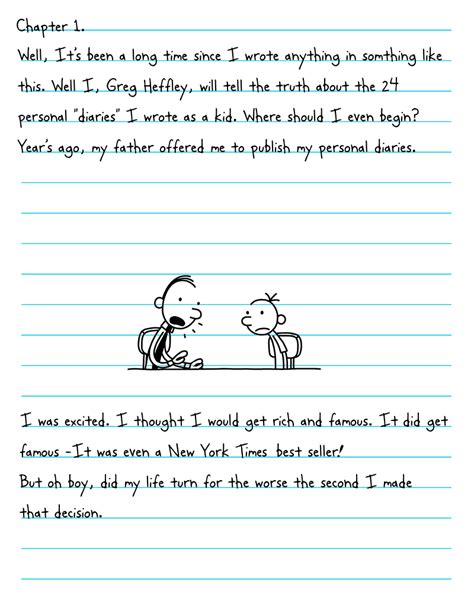 Chapter 1.
Well, It's been a long time since I wrote anything in somthing like
this. Well I, Greg Heffley, will tell the truth about the 24
personal "diaries" I wrote as a kid. Where should I even begin?
Year's ago, my father offered me to publish my personal diaries.
I was excited. I thought I would get rich and famous. It did get
famous -It was even a New York Times best seller!
But oh boy, did my life turn for the worse the second I made
that decision.